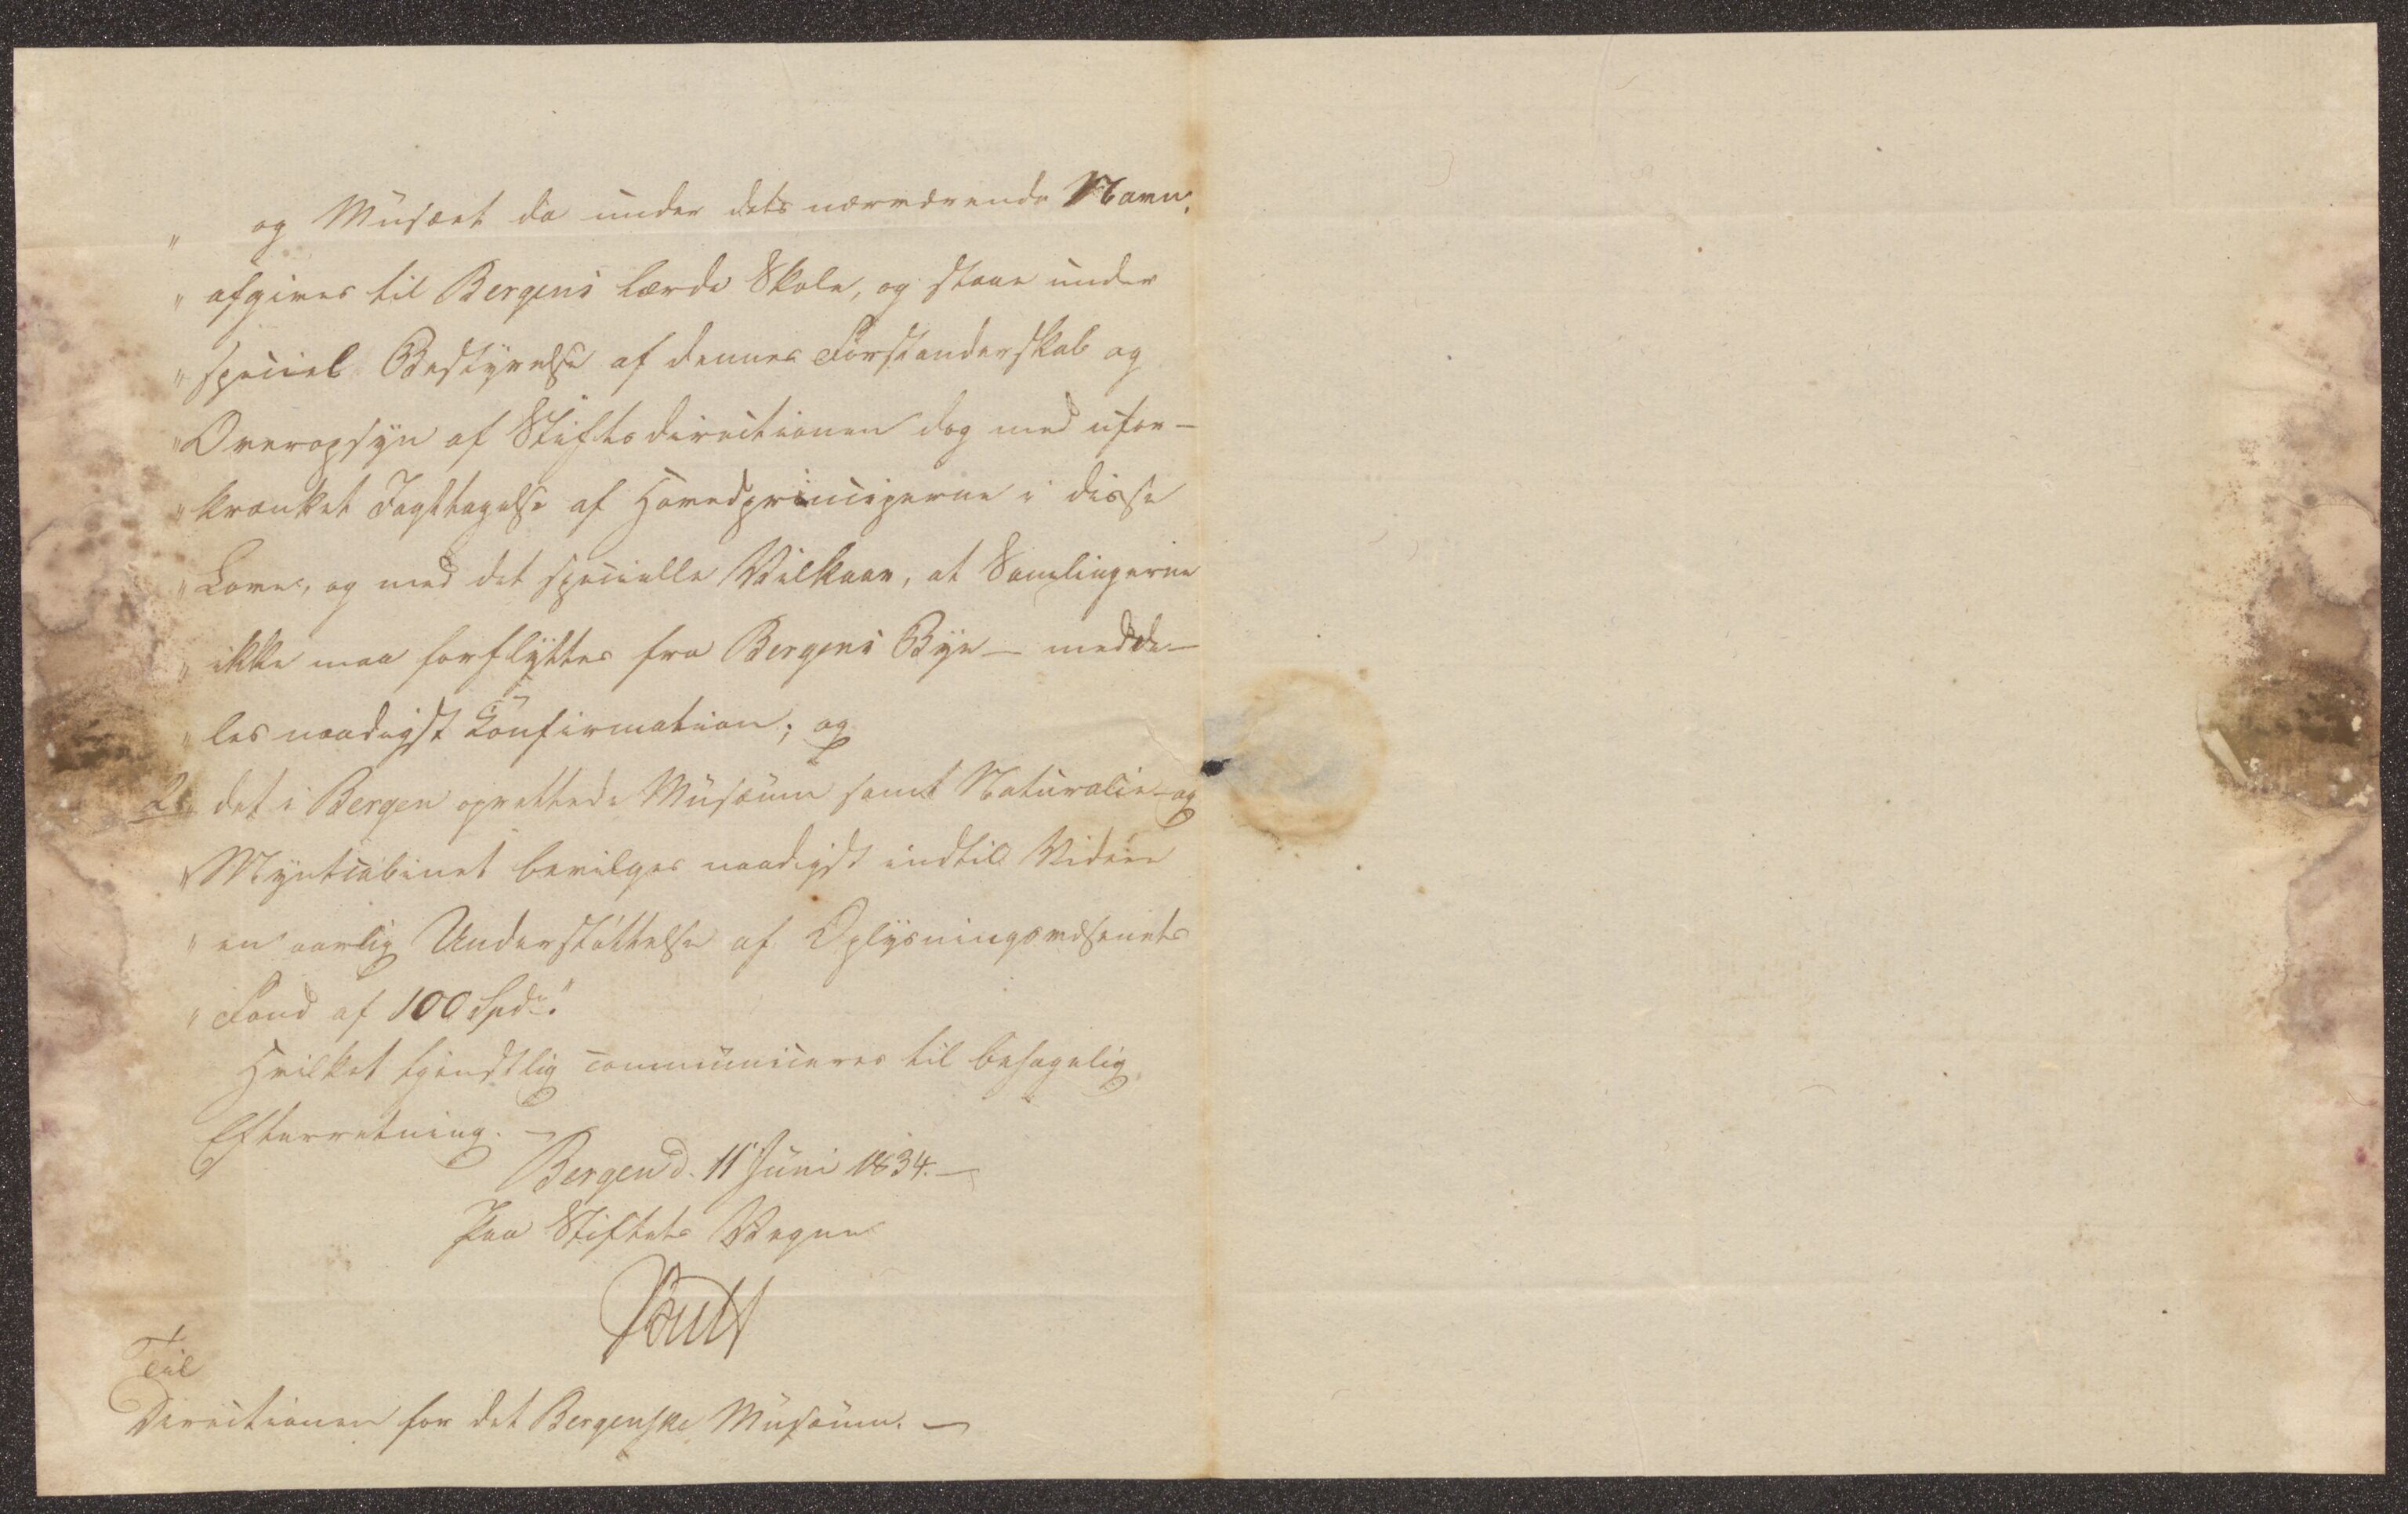 " og Musæet da under dets nærværende Navn,
" afgives til Bergens lærde Skole, og staae under
" speciel Bestyrelse af dennes Forstanderskab og
" Overopsyn af Stiftsdirectionen dog med ufor-
" krænket Iagttagelse af Hovedprinciperne i disse
" Love, og med det specielle Vilkaar, at Samlingerne
" ikke maa forflyttes fra Bergens Bye – medde-
" les naadigst Confirmation; og
2. det i Bergen oprettede Musæum samt Naturalie- og
" Myntcabinet bevilges naadigst indtil Videre
" en aarlig Understøttelse af Oplysningsvæsenets
" Fond af 100 Spd."
Hvilket tjenstlig communiceres til behagelig
Efterretning. –
Bergen d. 11 Juni 1834. –
Paa Stiftets Vegne
Til
Directionen for det Bergenske Musæum. –